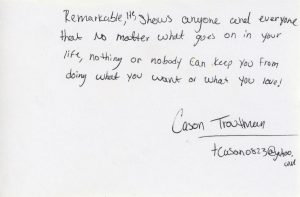 Remarkable, It's shows anyone and everyone
that no matter what goes on in your
life, nothing or nobody can keep you from
doing what you want or what you love!
Cason Troutman
tcason0823@yahoo.
com